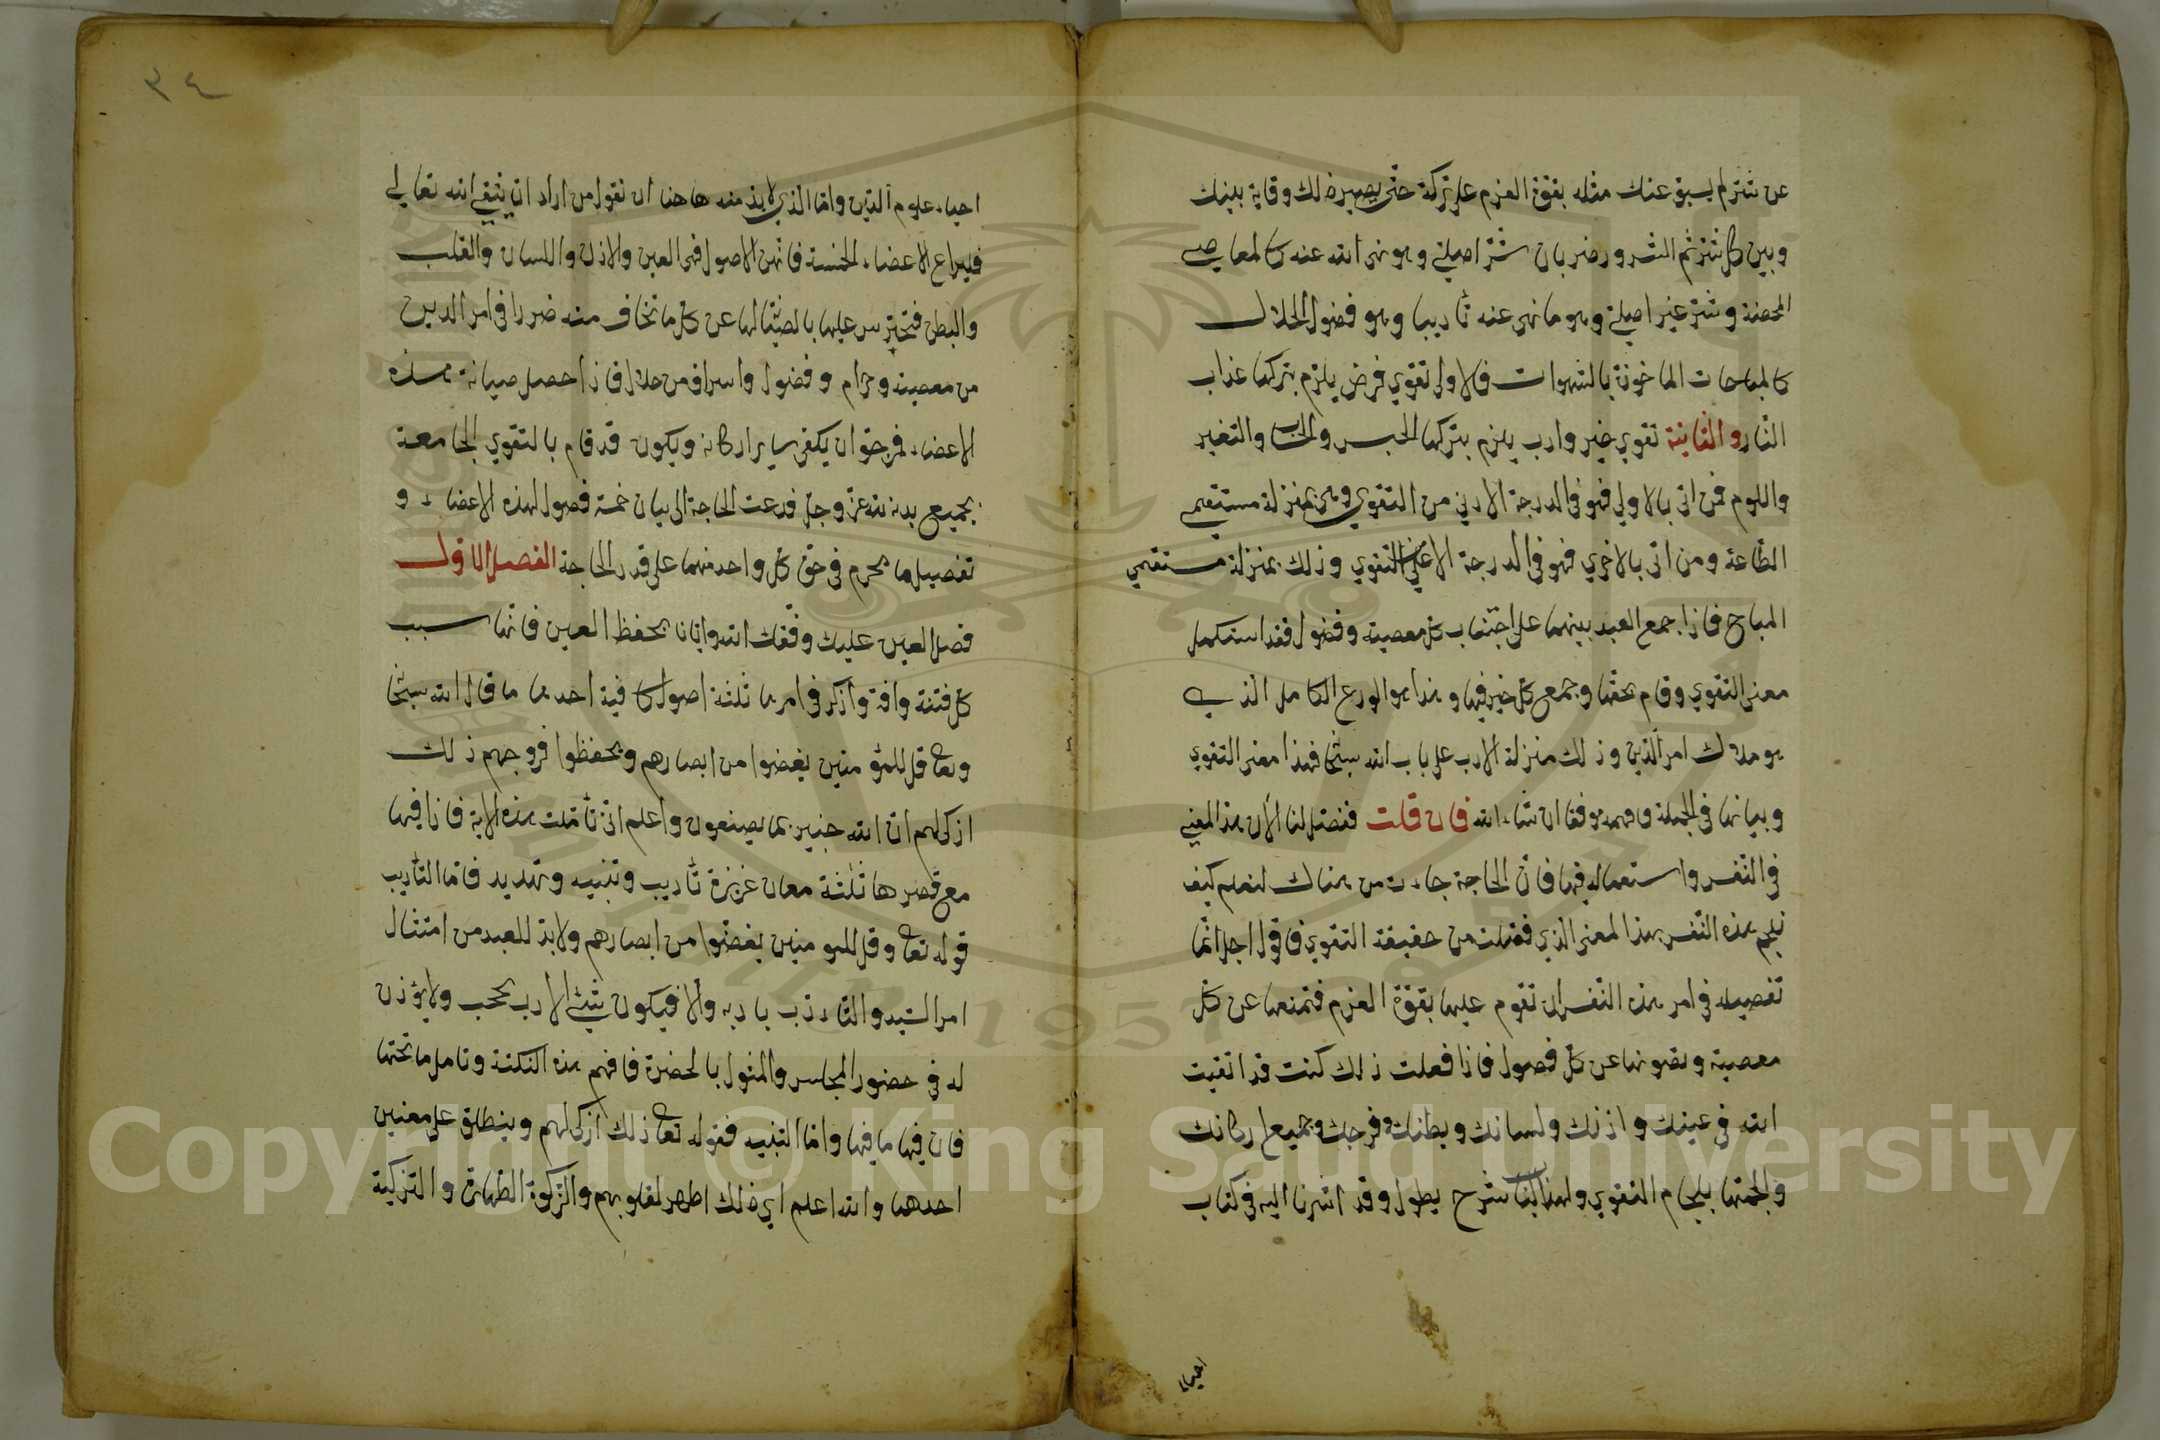 عن شر لم يسبق عنك مثله بقوة العزم على تركه حتى يصير ذلك وقاية بينك
وبين كل شر ثم الشرور ضربان شر اصلي وهو نهى الله عنه كالمعاصي
المحضة وشر غير اصلي وهو ما نهى عنه تأديبا وهو فضول الحلال
كالمباحات الماخوذة بالشهوات فالاولى تقوى فرض يلزم بتركها عذاب
النار والثانية تقوى خير وادب يلزم بتركها الحبس والحساب والتغيير
واللوم فمن اتى بالاولى فهو في الدرجة الادنى من التقوى وهى بمنزلة مستقيم
الطاعة ومن اتى بالاخرى فهو في الدرجة الاعلى من التقوى وذلك بمنزلة مستقيمي
المباح فاذا جمع العبد بينهما على اجتناب كل معصية وفضول فقد استكمل
معنى التقوى وقام بحقها وجمع كل خير فيها وهذا هو الورع الكامل الذي
هو ملاك امر الدين وذلك منزلة الادب على باب الله سبحانه فهذا معنى التقوى
وبيانها في الجملة فافهمه موفقا ان شاء الله فان قلت ففصل لنا الآن هذا المعنى
في النفس واستعماله فيها فان الحاجة جاءت من هناك لنعلم كيف
نلجم هذه النفس بهذا المعنى الذي فصلت من حقيقة التقوى فاقول اجل انما
تفصيله في امر هذه النفس ان تقوم عليها بقوة العزم فتمنعها عن كل
معصية وتصونها عن كل فضول فاذا فعلت ذلك كنت قد اتقيت
الله في عينك واذنك ولسانك وبطنك وفرجك وجميع اركانك
والجمتها بلجام التقوى ولهذا الباب شرح يطول وقد اشرنا اليه في كتاب
احياء
٣٤
احياء علوم الدين واما الذي لا بد منه هاهنا ان نقول من اراد ان يتقي الله تعالى
فليراع الاعضاء الخمسة فانهن الاصول فهى العين والاذن واللسان والقلب
والبطن فتحترس عليها بالصيانة لها عن كل ما تخاف منه ضررا في امر الدين
من معصية وحرام وفضول واسراف من حلال فاذا حصل صيانة هذه
الاعضاء فمرجو ان يكفى سائر اركانه ويكون قد قام بالتقوى الجامعة
بجميع بدنه لله عز وجل فدعت الحاجة الى بيان خمسة فصول لهذه الاعضاء و
تفصيل ما يحرم في حق كل واحد منهما على قدر الحاجة الفصل الاول
فصل العين عليك وفقك الله وايانا بحفظ العين فانها سبب
كل فتنة وافة واذكر في امرها ثلثة اصول كافية احدها ما قال الله سبحانه
وتعا قل للمؤمنين يغضوا من ابصارهم ويحفظوا فروجهم ذلك
ازكى لهم ان الله خبير بما يصنعون واعلم انى تأملت هذه الاية فاذا فيها
مع قصرها ثلثة معان عزيزة تأديب وتنبيه وتهديد فاما التأديب
قوله تعا وقل للمو منين يغضوا من ابصارهم ولا بد للعبد من امتثال
امر السيد والتادب بادبه والا فيكون سيئ الادب يحجب ولا يؤذن
له في حضور المجلس والمثول بالحضرة فافهم هذه النكتة وتامل ما تحتها
فان فيها ما فيها واما التنبيه فقوله تعا ذلك ازكى لهم وينطلق على معنيين
احدهما والله اعلم اى ذلك اطهر لقلوبهم والزكوة الطهارة والتزكية